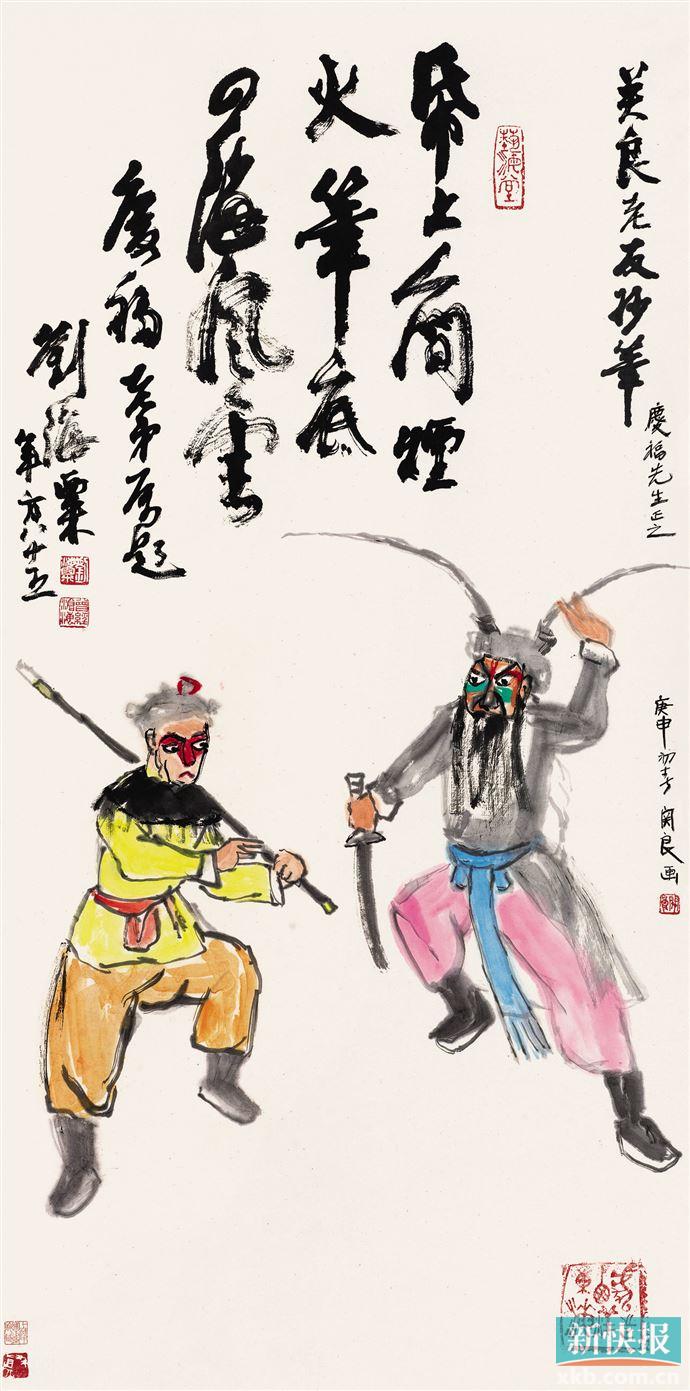 关良老友妙筆
慶福先生正之
藝海堂
帋上人間煙
火筆底
四海風雲
慶福老弟屬題
劉海粟
年方八十五
庚申初春 関良画
新快报
xkb.com.cn